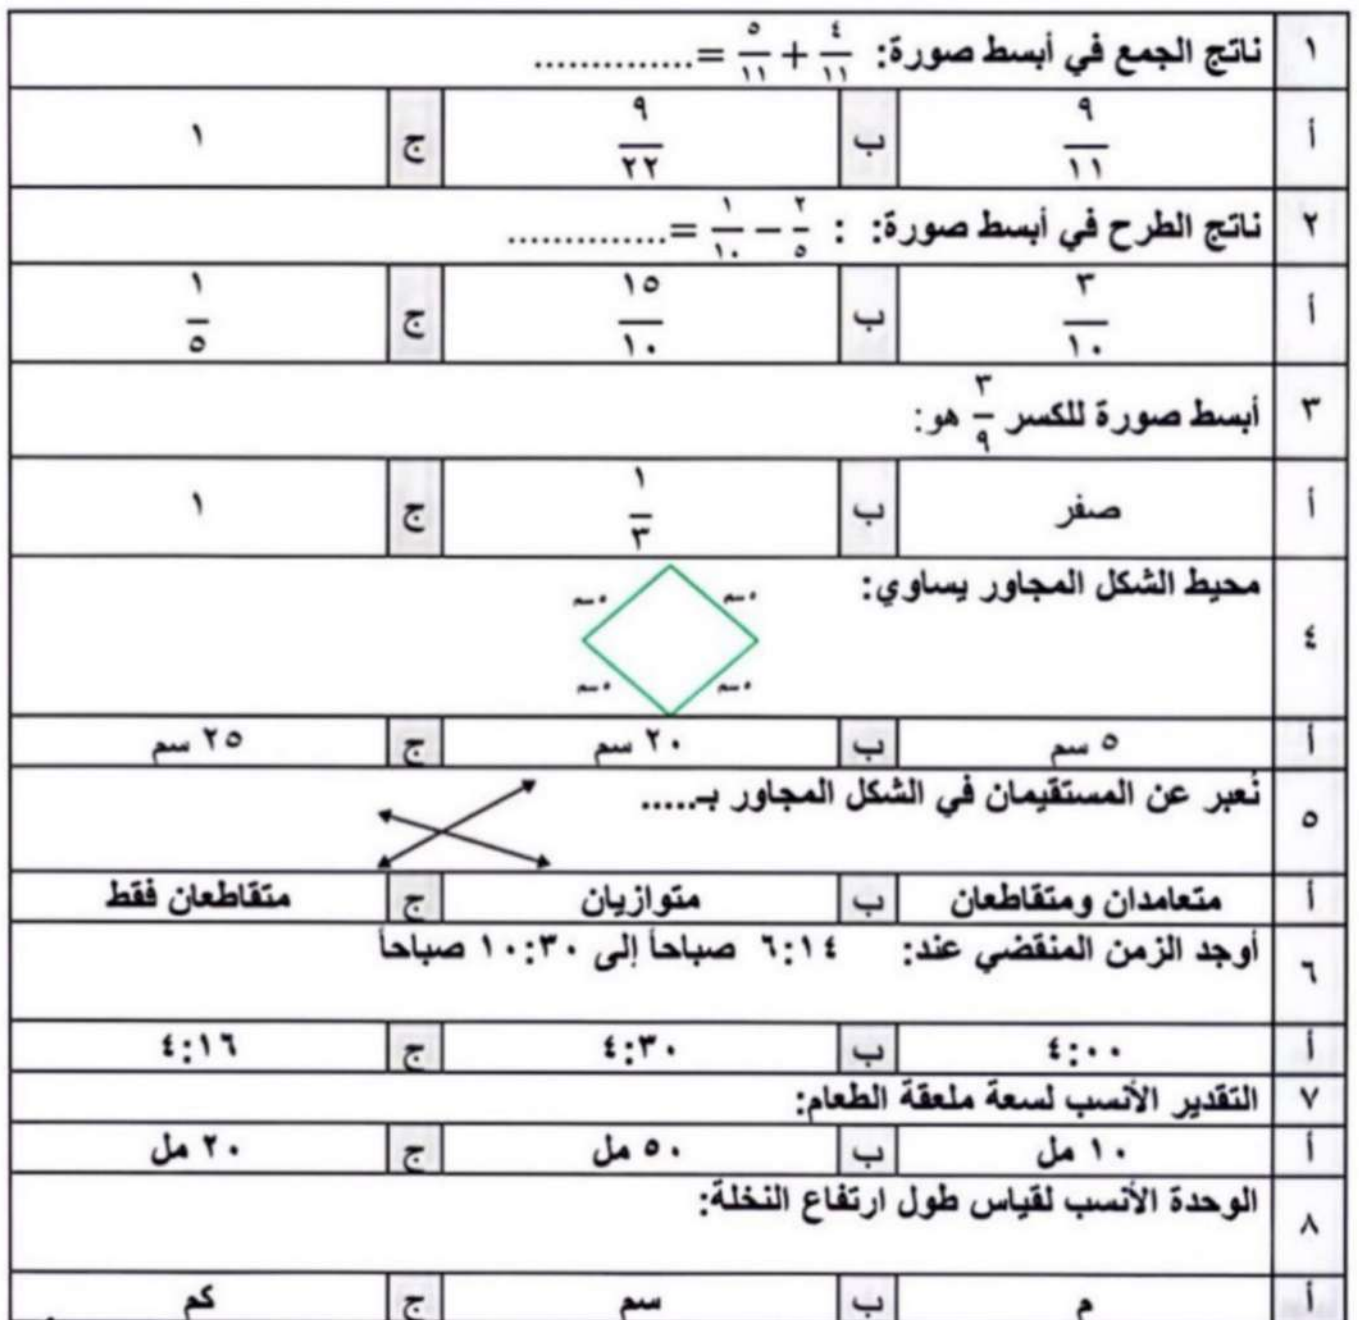 ١ ناتج الجمع في أبسط صورة: ٤/١١ + ٥/١١ =..............
أ ٩/١١ ب ٩/٢٢ ج ١
٢ ناتج الطرح في أبسط صورة: : ٢/٥ − ١/١٠ =..............
أ ٣/١٠ ب ١٥/١٠ ج ١/٥
٣ أبسط صورة للكسر ٣/٩ هو:
أ صفر ب ١/٣ ج ١
٤ محيط الشكل المجاور يساوي:
٥سم ٥سم
٥سم ٥سم
أ ٥ سم ب ٢٠ سم ج ٢٥ سم
٥ نُعبر عن المستقيمان في الشكل المجاور بـ.....
أ متعامدان ومتقاطعان ب متوازيان ج متقاطعان فقط
٦ أوجد الزمن المنقضي عند: ٦:١٤ صباحاً إلى ١٠:٣٠ صباحاً
أ ٤:٠٠ ب ٤:٣٠ ج ٤:١٦
٧ التقدير الأنسب لسعة ملعقة الطعام:
أ ١٠ مل ب ٥٠ مل ج ٢٠ مل
٨ الوحدة الأنسب لقياس طول ارتفاع النخلة:
أ م ب سم ج كم